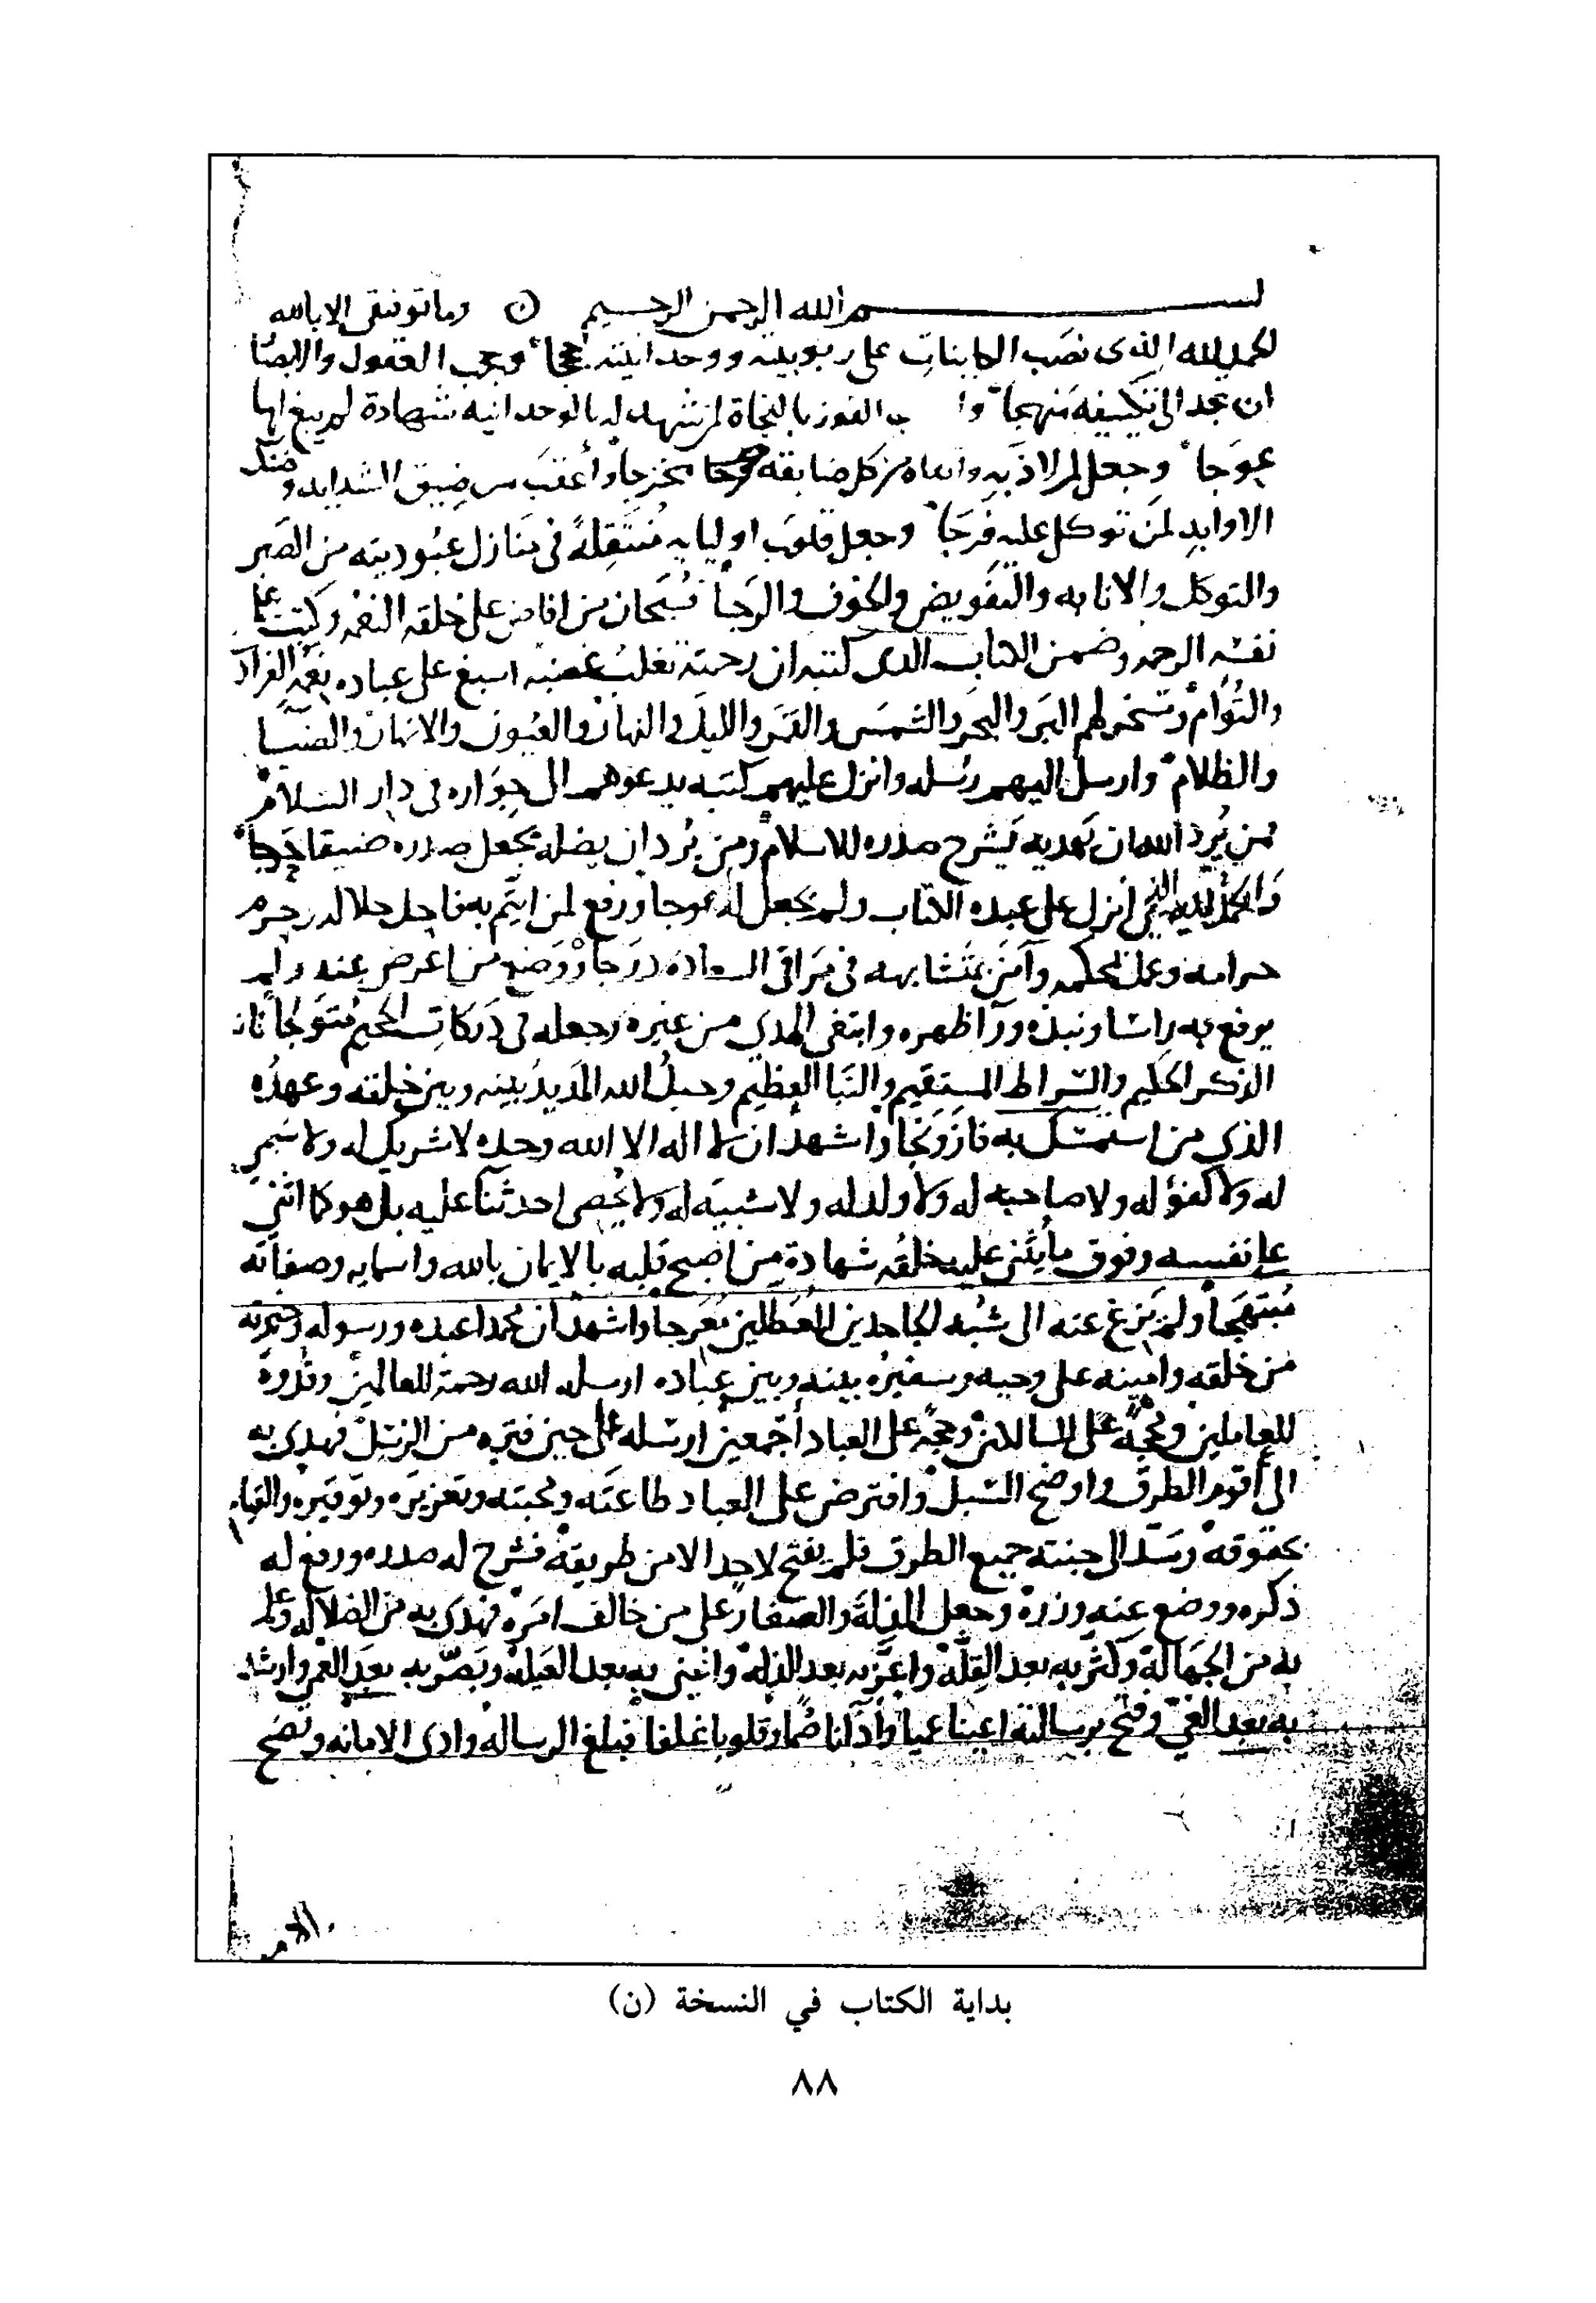 بسم الله الرحمن الرحيم وما توفيقي الا بالله
الحمد لله الذي نصب الكاينات على ربوبيته ووحدانيته حججا وحجب العقول والابصا
ان تجد الى تكييفه منهجا وا ب الفوز بالنجاة لمن شهد له بالوحدانيه شهادة لم يبغ لها
عوجا وجعل لمن لاذ به واتقاه من كل ضايقه مخرجا واعقب من ضيق الشدايد وضنك
الاوابد لمن توكل عليه فرجا وجعل قلوب اوليايه متنقلة في منازل عبوديته من الصبر
والتوكل والانابه والتفويض والخوف والرجا فسبحان من افاض على خلقه النعمه وكتب على
نفسه الرحمه وضمن الكتاب الذي كتبه ان رحمته تغلب غضبه اسبغ على عباده نعمه الفراد
والتوام وسخر لهم البر والبحر والشمس والقمر والليل والنهار والعيون والانهار والضيا
والظلام وارسل اليهم رسله وانزل عليهم كتبه يدعوهم الى جواره في دار السلام
فمن يرد الله ان يهديه يشرح صدره للاسلام ومن يرد ان يضله يجعل صدره ضيقا حرجا
والحمد لله الذي انزل على عبده الكتاب ولم يجعل له عوجا ورفع لمن ايتم به فاحل حلاله وحرم
حرامه وعمل بمحكمه وآمن بمتشابهه في مراقي السعاده درجا ووضع من اعرض عنه ولم
يرفع به راسا ونبذه ورآ ظهره وابتغى الهدي من غيره فجعله في دركات الجحيم متولجا فانه
الذكر الحكيم والصراط المستقيم والنبا العظيم وحبل الله المديد بينه وبين خلقه وعهده
الذي من استمسك به فاز ونجا واشهد ان لا اله الا الله وحده لا شريك له ولا سمي
له ولا كفؤ له ولا صاحبه له ولا ولد له ولا شبيه له ولا يحصي احد ثنآ عليه بل هو كما اثنى
على نفسه وفوق ما يثني عليه خلقه شهادة من اصبح قلبه بالايمان بالله واسمايه وصفاته
مبتهجا ولم يزغ عنه الى شبه الجاحدين المعطلين معرجا واشهد ان محمدا عبده ورسوله وخيرته
من خلقه وامينه على وحيه وسفيره بينه وبين عباده ارسله الله رحمة للعالمين وقدوة
للعاملين ومحجة على السالكين وحجة على العباد اجمعين ارسله على حين فتره من الرسل فهدى به
الى اقوم الطرق واوضح السبل وافترض على العباد طاعته ومحبته وتعزيره وتوقيره والقيام
بحقوقه وسد الى جنته جميع الطرق فلم يفتح لاحد الا من طريقه فشرح له صدره ورفع له
ذكره ووضع عنه وزره وجعل الذلة والصغار على من خالف امره فهدى به من الضلاله وعلم
به من الجهالة وكثر به بعد القلة واعز به بعد الذله واغنى به بعد العيلة وبصر به بعد العمى وارشد
به بعد الغي وفتح برسالته اعينا عميا وآذانا صما وقلوبا غلفا فبلغ الرساله وادى الامانه ونصح
الامه
بداية الكتاب في النسخة (ن)
٨٨